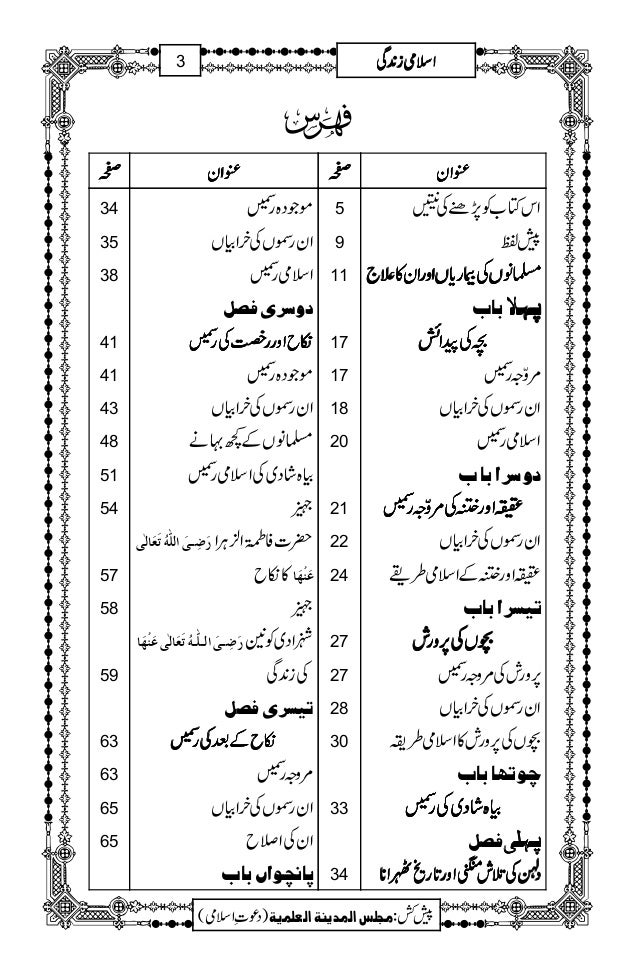 اسلامی زندگی
3
فہرس
عنوان صفحہ
اس کتاب کو پڑھنے کی نیتیں 5
پیش لفظ 9
مسلمانوں کی بیماریاں اور ان کا علاج 11
پہلا باب
بچہ کی پیدائش 17
مروّجہ رسمیں 17
ان رسموں کی خرابیاں 18
اسلامی رسمیں 20
دوسرا باب
عقیقہ اور ختنہ کی مروّجہ رسمیں 21
ان رسموں کی خرابیاں 22
عقیقہ اور ختنہ کے اسلامی طریقے 24
تیسرا باب
بچوں کی پرورش 27
پرورش کی مروجہ رسمیں 27
ان رسموں کی خرابیاں 28
بچوں کی پرورش کا اسلامی طریقہ 30
چوتھا باب
بیاہ شادی کی رسمیں 33
پہلی فصل
دلہن کی تلاش منگنی اور تاریخ ٹھہرانا 34
عنوان صفحہ
موجودہ رسمیں 34
ان رسموں کی خرابیاں 35
اسلامی رسمیں 38
دوسری فصل
نکاح اور رخصت کی رسمیں 41
موجودہ رسمیں 41
ان رسموں کی خرابیاں 43
مسلمانوں کے کچھ بہانے 48
بیاہ شادی کی اسلامی رسمیں 51
جہیز 54
حضرت فاطمۃ الزہرا رَضِیَ اللّٰهُ تَعَالٰی
عَنْهَا کا نکاح 57
جہیز 58
شہزادی کونین رَضِیَ اللّٰهُ تَعَالٰی عَنْهَا
کی زندگی 59
تیسری فصل
نکاح کے بعد کی رسمیں 63
مروجہ رسمیں 63
ان رسموں کی خرابیاں 65
ان کی اصلاح 65
پانچواں باب
پیش کش: مجلس المدینة العلمیة (دعوتِ اسلامی)